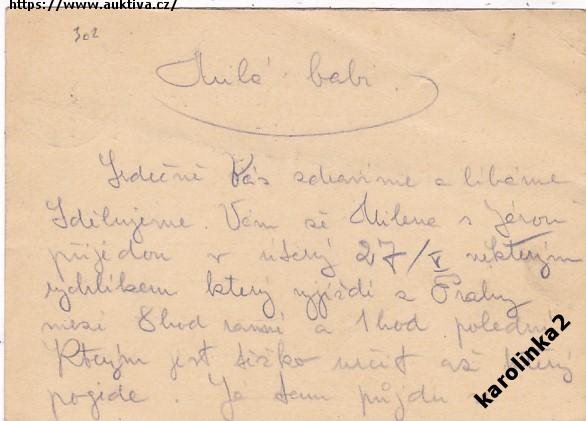 https://www.auktiva.cz/
302
Milá babi.
Srdečně Vás zdravíme a líbáme
Sdělujeme Vám že Milena s Járou
přijedou v úterý 27/V některým
rychlíkem který vyjíždí z Prahy
mezi 8 hod ranní a 1 hod polední
Kterým jest těžko určit až který
pojede. Já tam půjdu
karolinka2